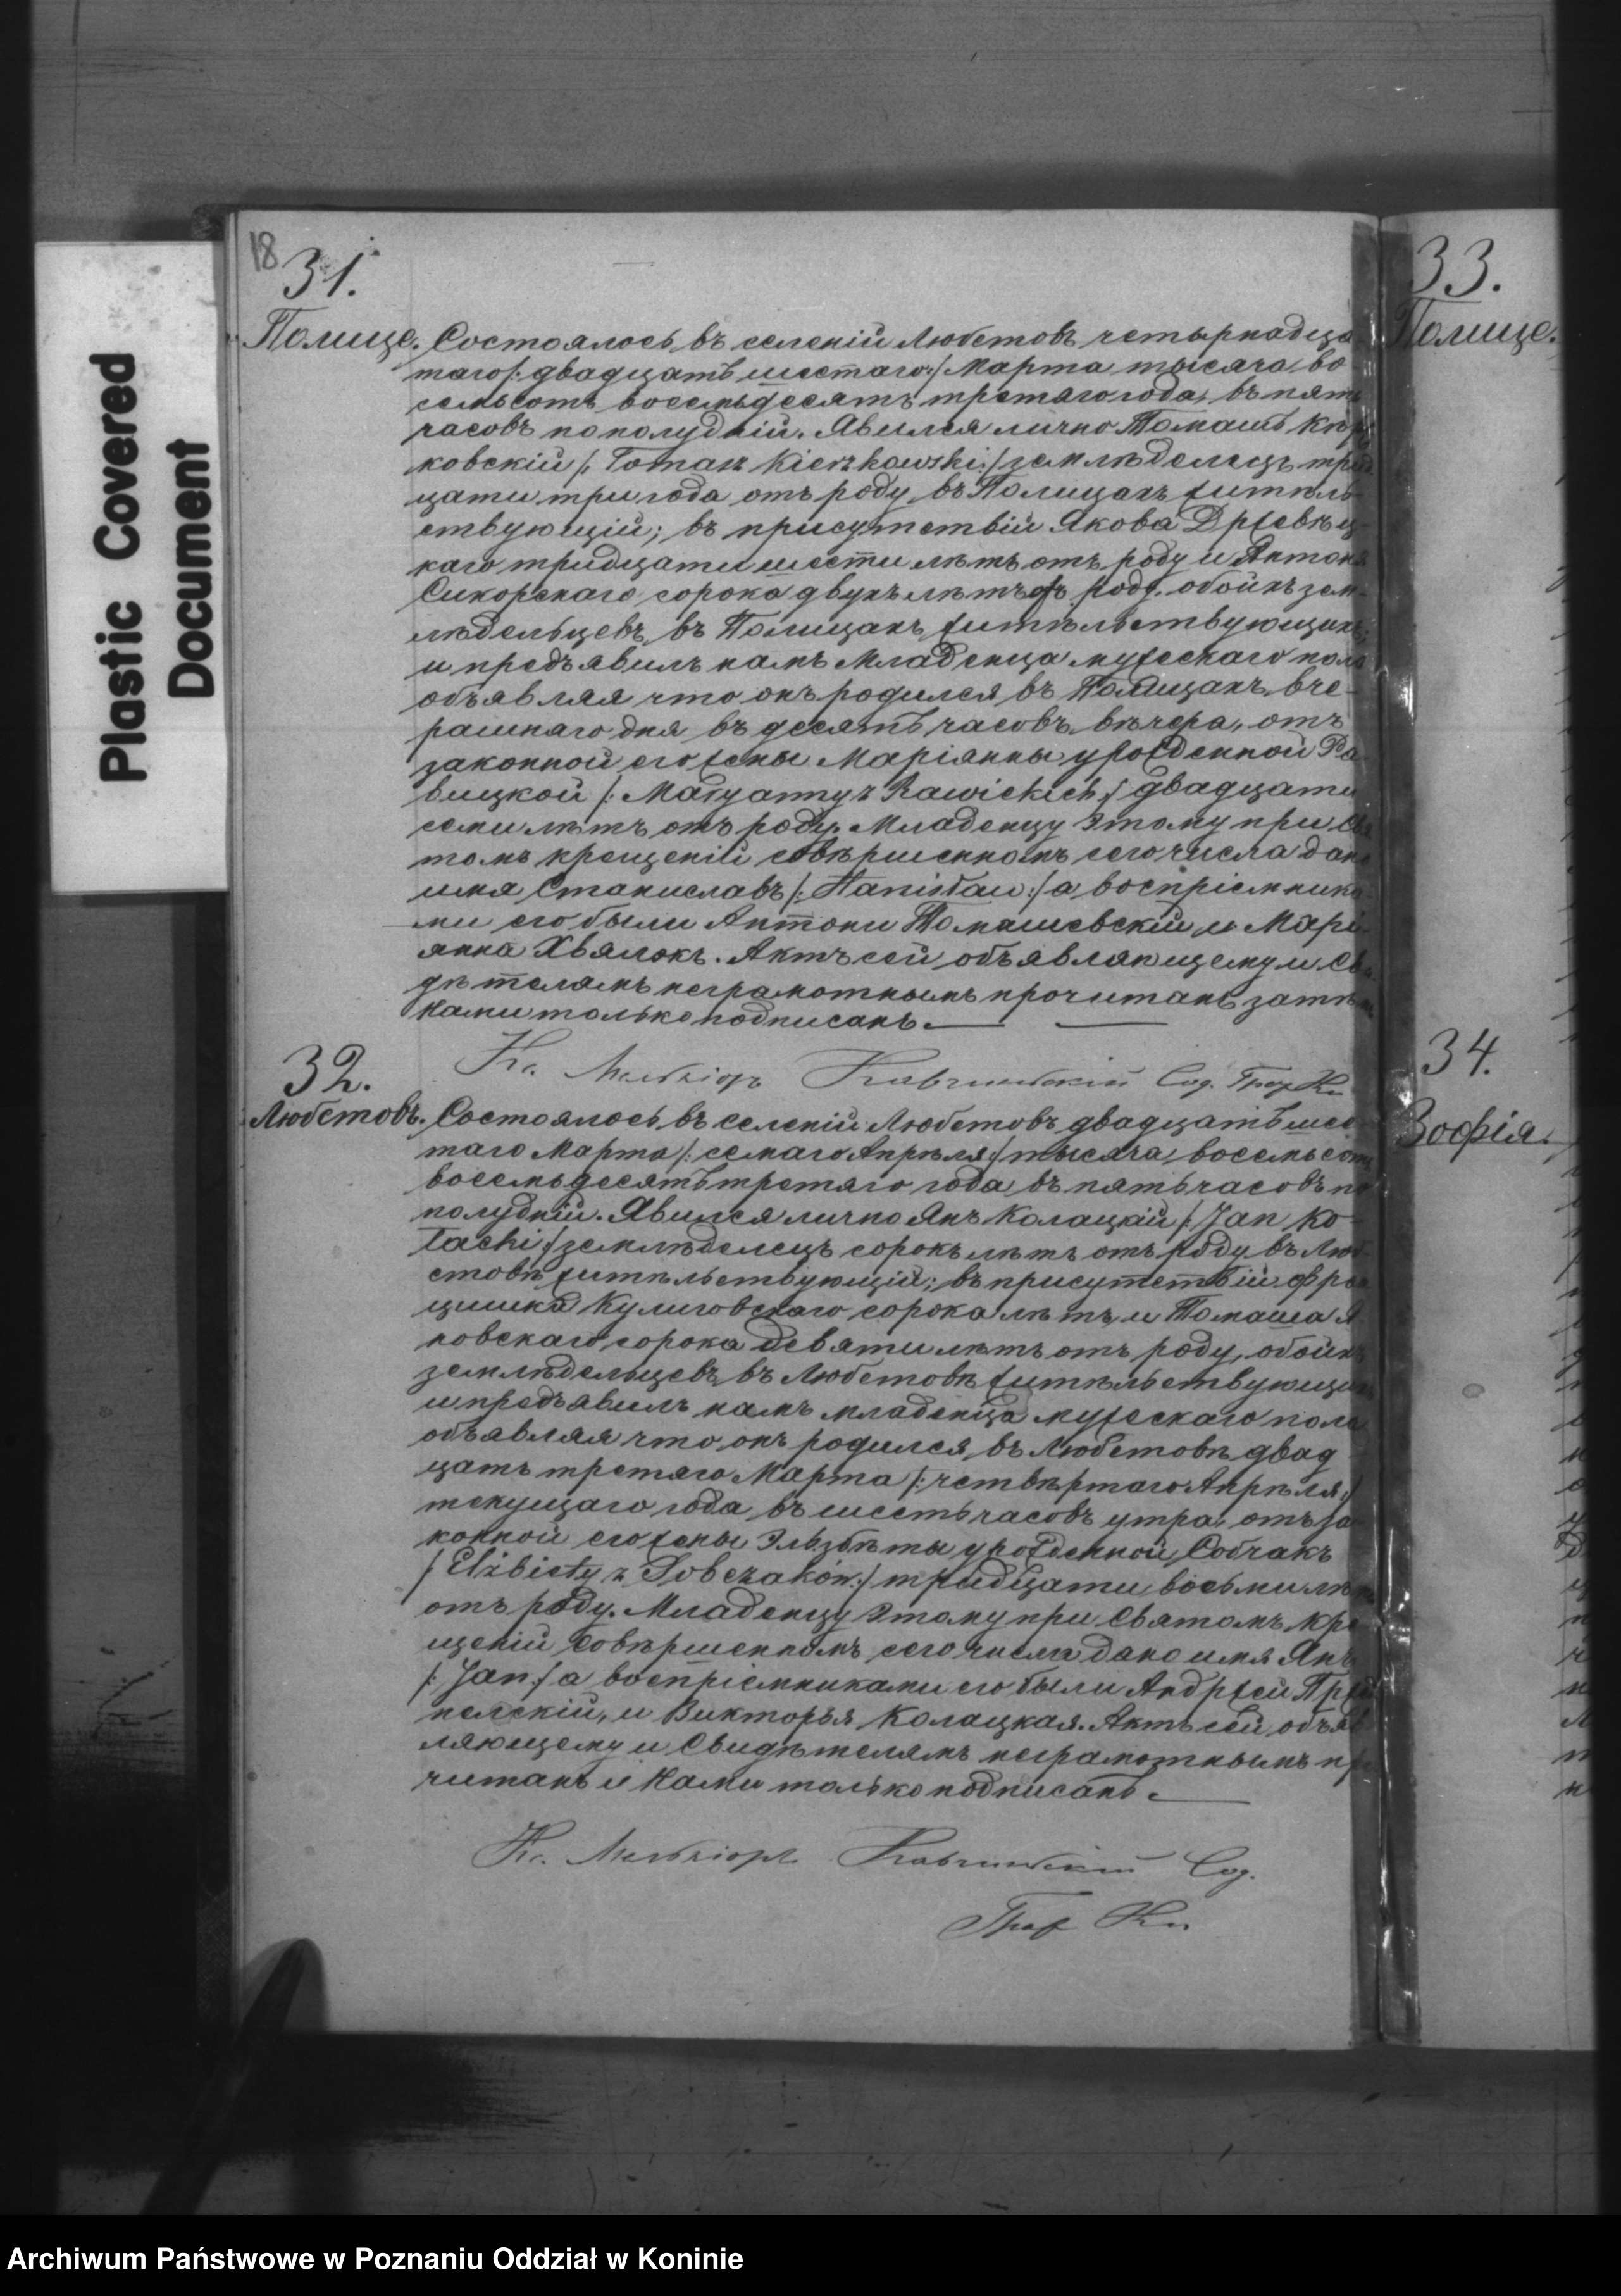 Plastic Covered
Document
18
31.
Полице.
Состоялось въ селеній Любстовъ четырнадца
таго /: двадцать шестаго :/ Марта тысяча во
семьсотъ восемьдесятъ третяго года, въ пять
часовъ пополудній. Явился лично Томашъ
ковскій /: Tomasz Kierzkowski :/ землѣделецъ трид
цати три года отъ роду въ Полицахъ жительс
ствующій; въ присутствій Якова Држевец
каго тридцати шести лѣтъ отъ роду и Антона
Сикорскаго сорока двухъ лѣтъ отъ роду, обойхъ зем
лѣдельцевъ, въ Полицахъ жительствующихъ;
и предъявилъ намъ младенца мужескаго пола
объявляя что онъ родился въ Полицахъ вче-
рашняго дня въ десять часовъ вѣчера, отъ
законной его жены Маріянны урожденной Ра
вицкой /: Maryanny z Rawickich :/ двадцати
семи лѣтъ отъ роду. Младенцу этому при Свя
томъ крещеній совѣршенномъ сего числа дано
имя Станиславъ /: Stanisław :/ а воспріемника
ми его были Антони Томашевскій и Марі
янна Хвялэкъ. Актъ сей объявляющему и Сви
дѣтелямъ неграмотнымъ прочитанъ затѣмъ
Нами только подписанъ.
Кс. Мельхіоръ Кавчинскій Сод. Граж Кн
32.
Любстовъ.
Состоялось въ селеній Любстовъ двадцать шес
таго Марта /: семаго Апрѣля :/ тысяча восемьсотъ
восемьдесятъ третяго года въ пять часовъ по
полудній. Явился лично Янъ Колацкій /: Jan Ko-
łacki :/ землѣделецъ сорокъ лѣтъ отъ роду въ Люб
стовѣ жительствующій; въ присутствій Фран
цишка Кулиговскаго сорока лѣтъ и Томаша Я
новскаго сорока девяти лѣтъ отъ роду, обойхъ
землѣдельцевъ въ Любстовѣ жительствующихъ
и предъявилъ намъ младенца мужескаго пола
объявляя что онъ родился въ Любстовѣ двад
цать третяго Марта /: четвѣртаго Апрѣля :/
текущаго года, въ шесть часовъ утра, отъ за
конной его жены Эльзбѣты урожденной Собчакъ
/: Elżbiety z Sobczaków :/ тридцати восьми лѣтъ
отъ роду. Младенцу этому при Святомъ кре
щеній совѣршенномъ сего числа дано имя Янъ
/: Jan :/ а воспріемниками его были Андржей
и Викторья Колацкая. Актъ сей объяв
ляющему и Свидѣтелямъ неграмотнымъ про
читанъ и Нами только подписанъ.
Кс. Мельхіоръ Кавчинскій Сод.
Граж Кн.
33.
Полице.
34.
Зофія.
Archiwum Państwowe w Poznaniu Oddział w Koninie